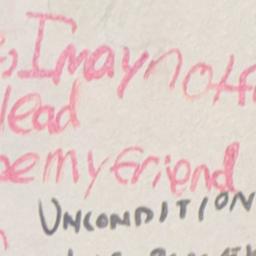 I may not
lead
be my friend
UNCONDITION